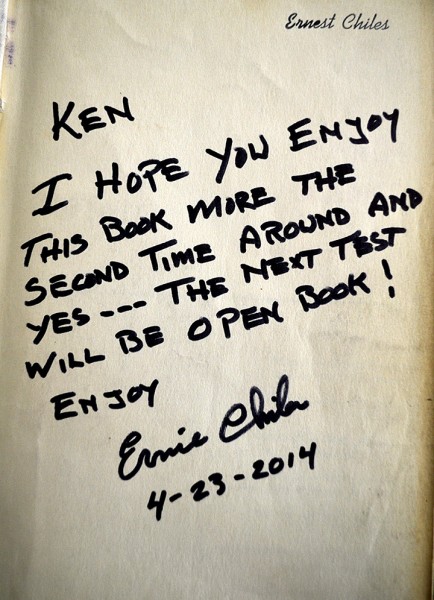 Ernest Chiles
KEN
I HOPE YOU ENJOY
THIS BOOK MORE THE
SECOND TIME AROUND AND
YES --- THE NEXT TEST
WILL BE OPEN BOOK!
ENJOY
Ernie Chiles
4-23-2014